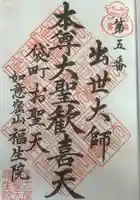 第五番
出世大師
本尊大聖歓喜天
袋町お聖天
如意寳山福生院